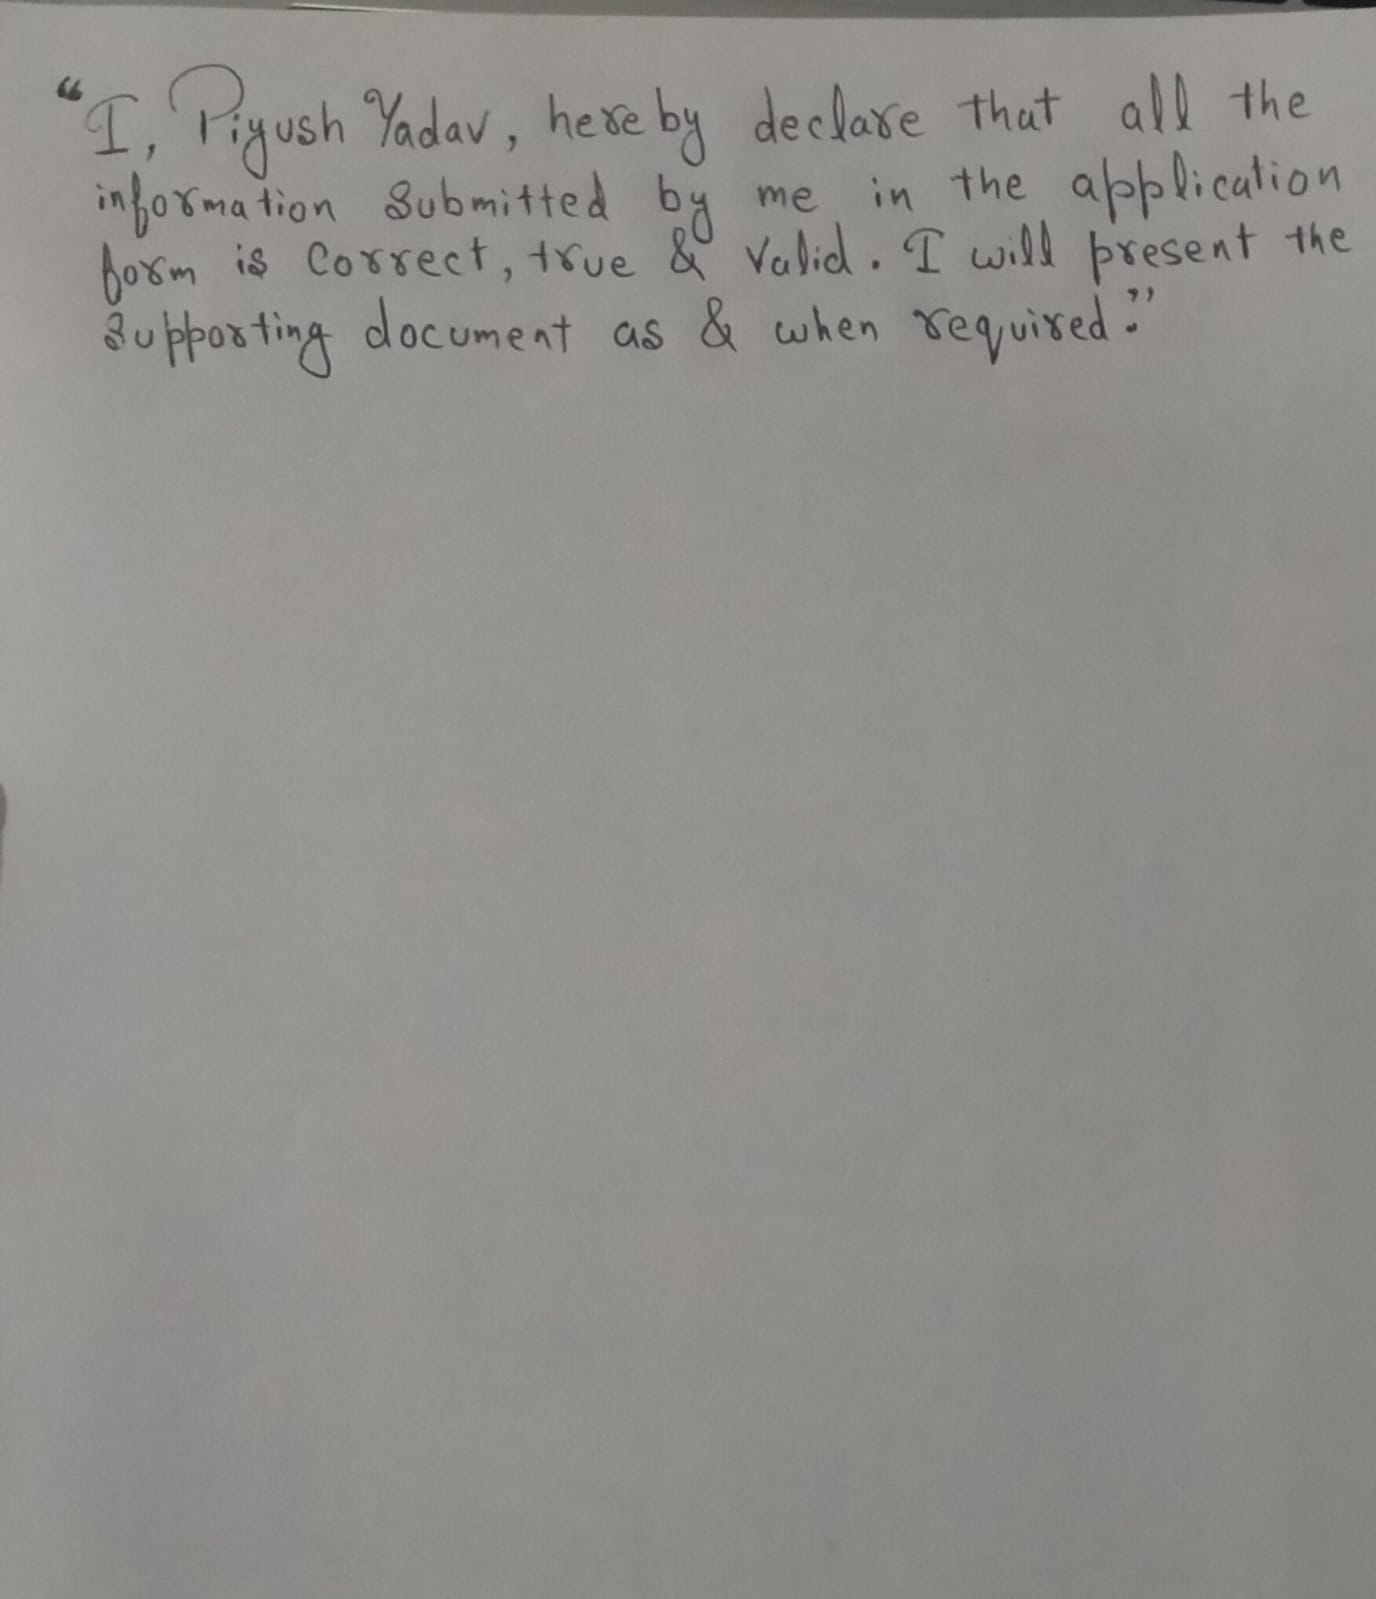 "I, Piyush Yadav, hereby declare that all the
information Submitted by me in the application
form is Correct, true & Valid. I will present the
Supporting document as & when required."